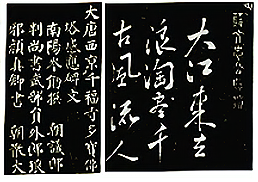 大江東去
浪淘盡千
古風流人
大唐西京千福寺多寶佛
塔感應碑文
南陽岑勛撰 朝議郎
判尚書武部員外郎琅
邪顏真卿書 朝散大